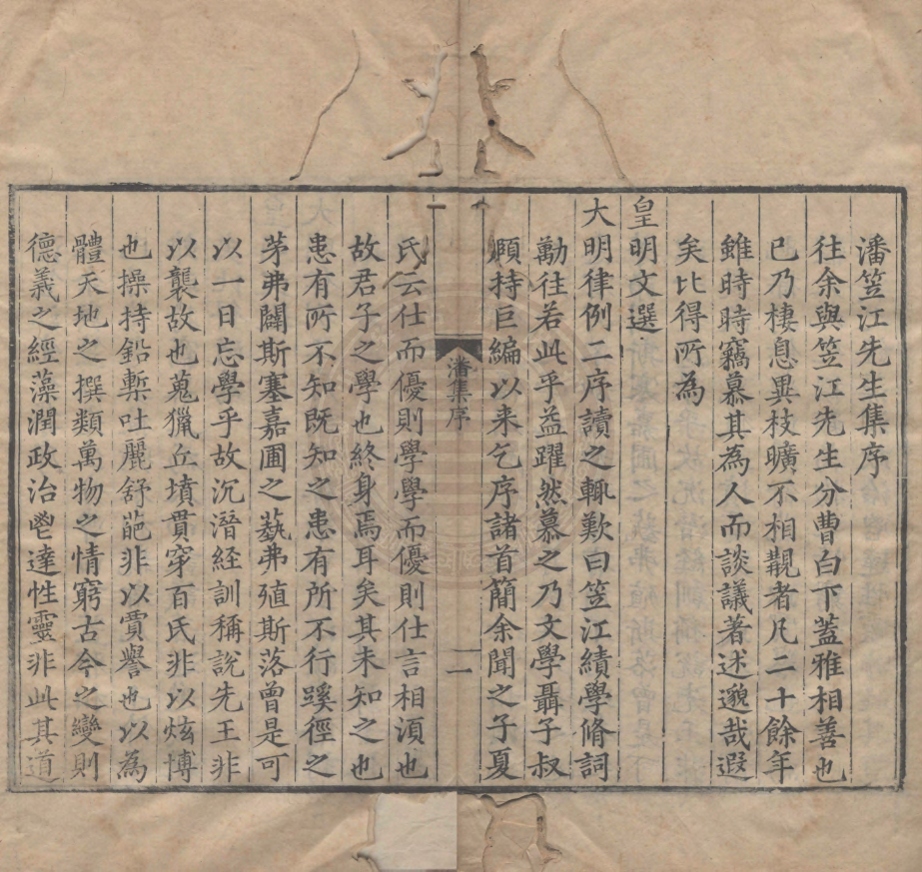 潘笠江先生集序
往余與笠江先生分曹白下蓋雅相善也
已乃棲息異枝曠不相覯者凡二十餘年
雖時時竊慕其為人而談議著述邈哉遐
矣比得所為
皇明文選
大明律例二序讀之輒歎曰笠江績學脩詞
勷往若此乎益躍然慕之乃文學聶子叔
頫持巨編以来乞序諸首簡余聞之子夏
潘集序
一
氏云仕而優則學學而優則仕言相湏也
故君子之學也終身焉耳矣其未知之也
患有所不知既知之患有所不行蹊徑之
茅弗闢斯塞嘉圃之蓺弗殖斯落曾是可
以一日忘學乎故沉潛経訓稱說先王非
以襲故也蒐獵丘墳貫穿百氏非以炫博
也操持鉛槧吐麗舒葩非以賈譽也以為
體天地之撰類萬物之情窮古今之變則
德義之經藻潤政治鬯達性靈非此其道